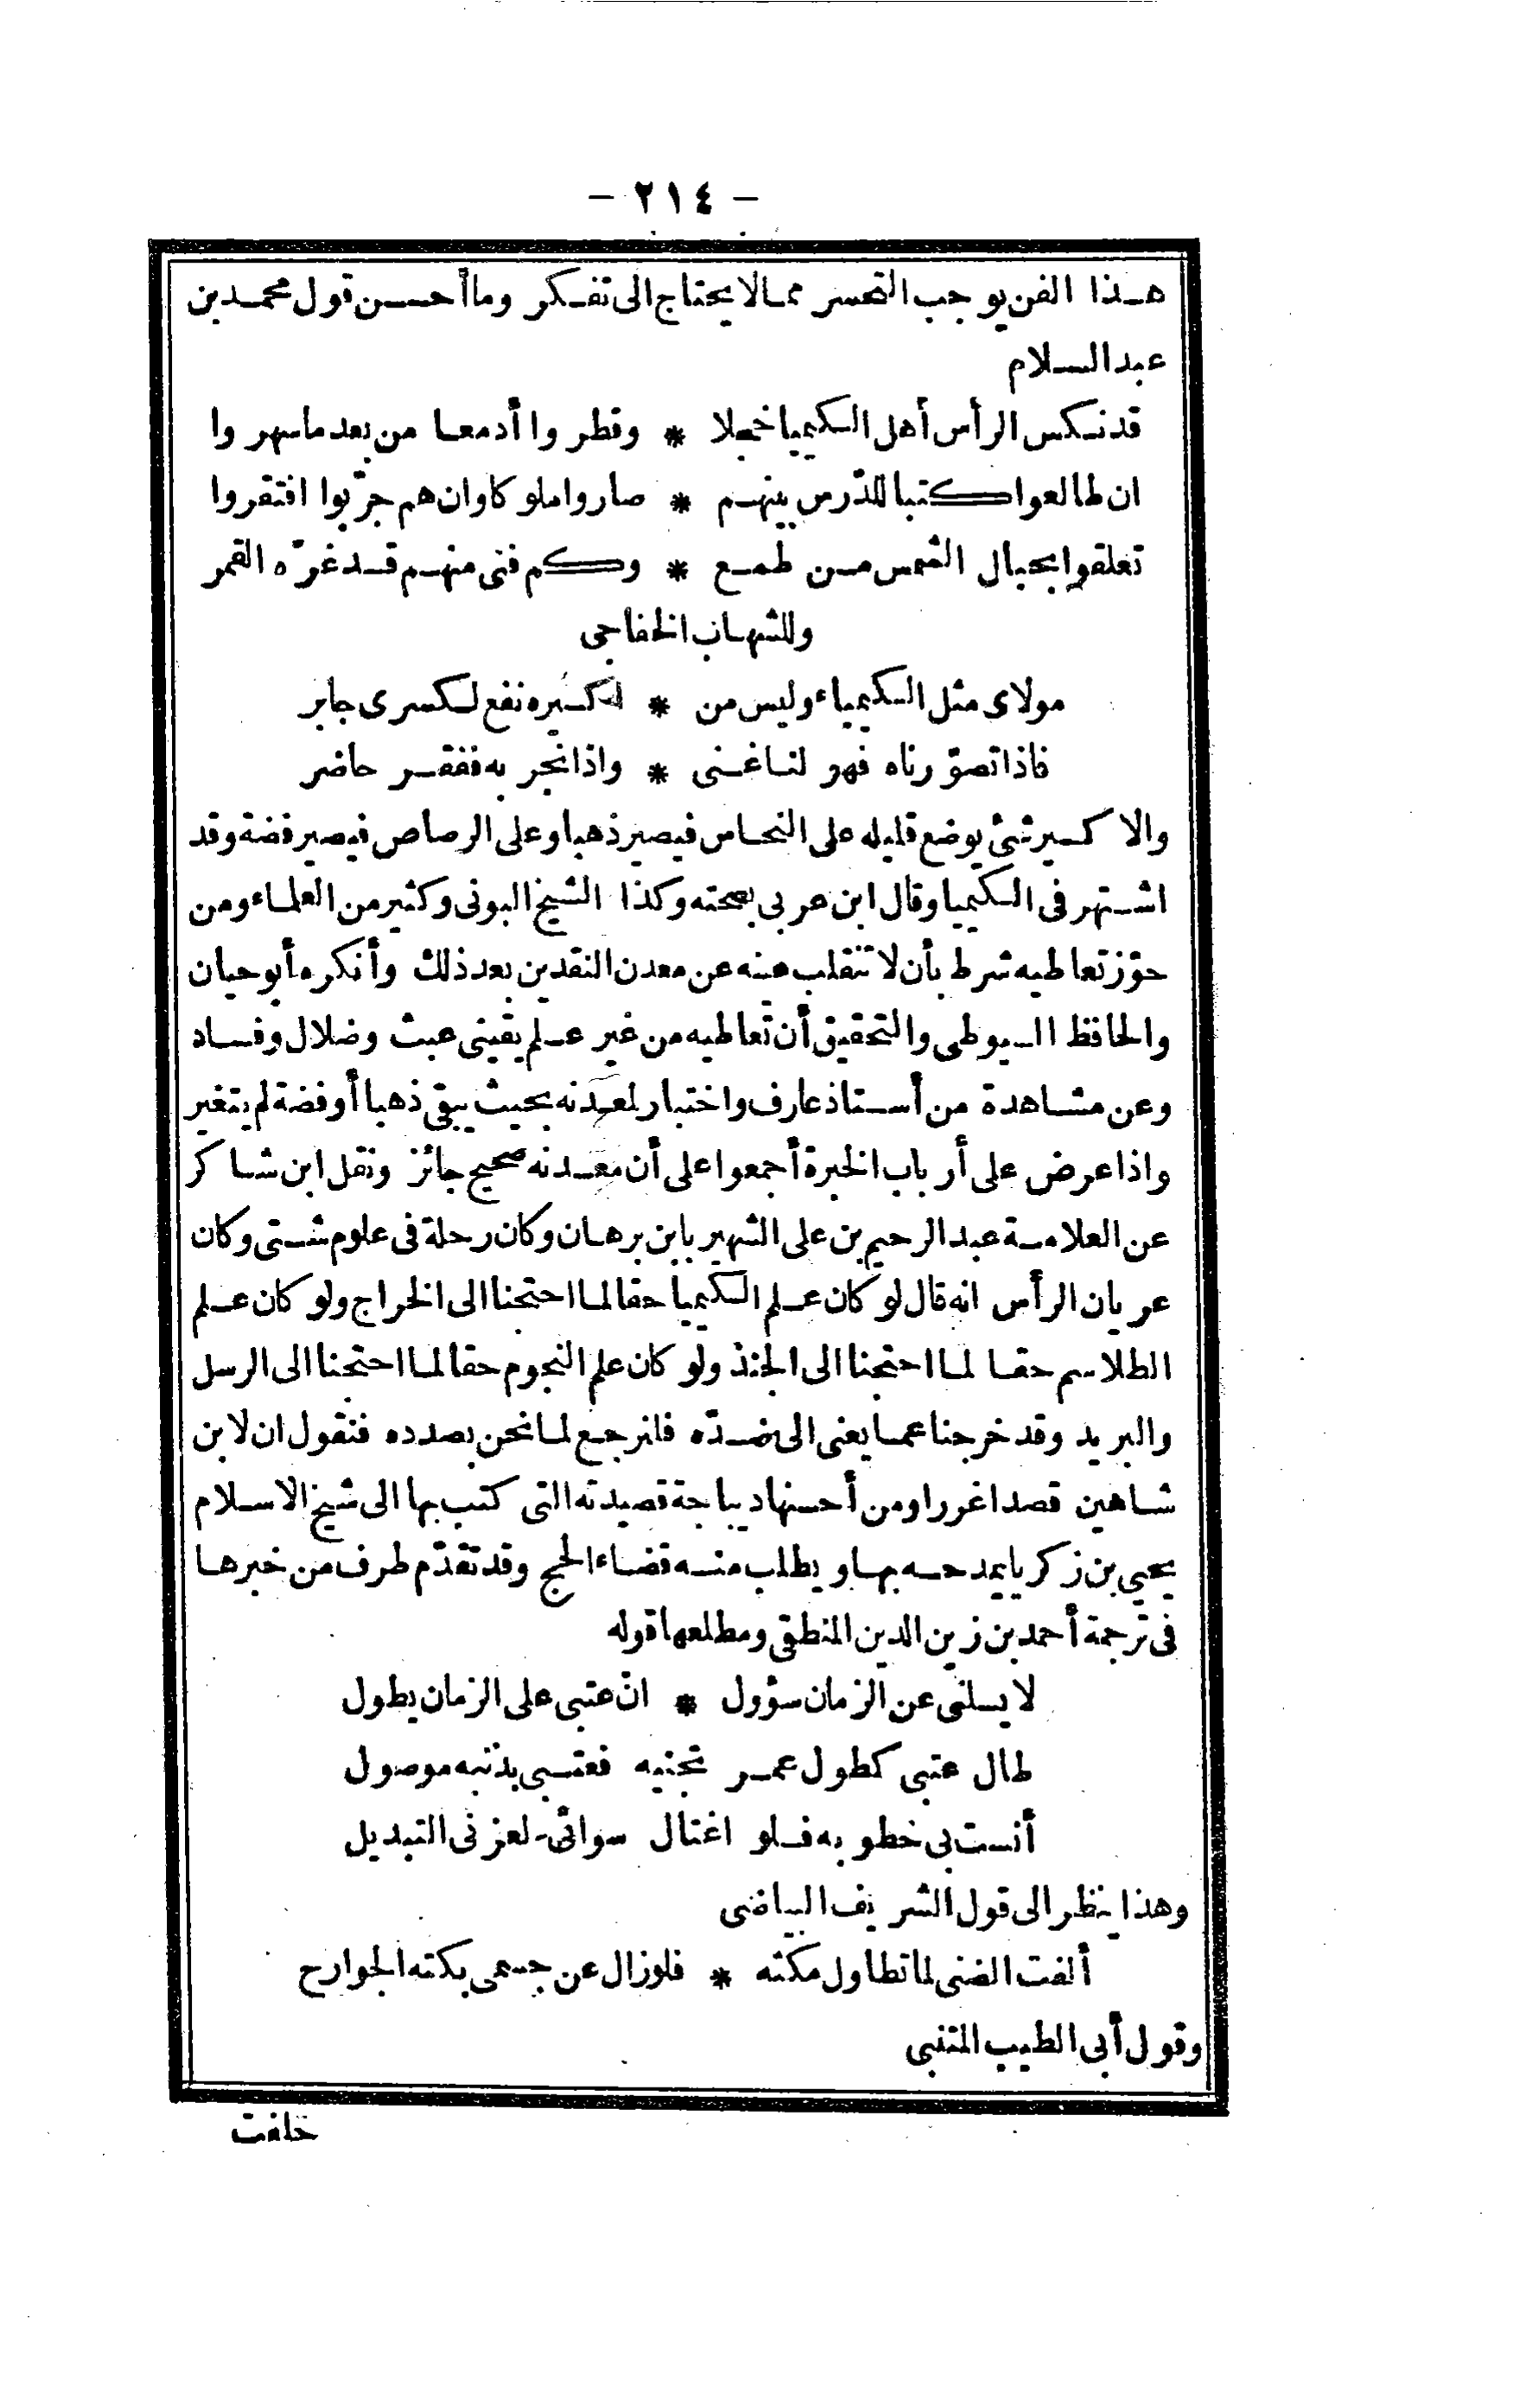 - ٢١٤ -
هـذا الفن يوجب التحسر مما لا يحتاج الى تفـكر وما أحسـن قول محمـد بن
عبد السـلام
قد نـكس الرأس أهل الـكيميا خجلا * وقطروا أدمعـا من بعد ما سهروا
ان طالعوا كتبا للدّرس بينهـم * صاروا ملوكا وان هم جرّبوا افتقروا
تعلقوا بحبال الشمس مـن طمـع * وكم فتى منهـم قـد غرّه القمر
وللشهـاب الخفاجى
مولاى مثل الـكيمياء وليس من * اكسيره نفع لـكسرى جابر
فاذا تصوّرناه فهو لنـا غـنى * واذا نجر به ففقـر حاضر
والاكـسير شئ يوضع قليله على النحـاس فيصير ذهبا وعلى الرصاص فيصير فضة وقد
اشـتهر فى الـكيميا وقال ابن عربى بصحته وكذا الشيخ البونى وكثير من العلمـاء ومن
جوّز تعاطيه شرط بأن لا تنقلب عينه عن معدن النقدين بعد ذلك وأنكره أبو حيان
والحافظ السـيوطى والتحقيق أن تعاطيه من غير عـلم يقينى عبث وضلال وفسـاد
وعن مشـاهدة من أسـتاذ عارف واختبار لمعـدنه بحيث يبقى ذهبا أو فضة لم يتغير
واذا عرض على أرباب الخبرة أجمعوا على أن معـدنه صحيح جائز ونقل ابن شـاكر
عن العلامـة عبد الرحيم بن على الشهير بابن برهـان وكان رحلة فى علوم شـتى وكان
عريان الرأس انه قال لو كان عـلم الـكيميا حقا لمـا احتجنا الى الخراج ولو كان عـلم
الطلاسم حقـا لمـا احتجنا الى الجند ولو كان علم النجوم حقا لمـا احتجنا الى الرسل
والبريد وقد خرجنا عمـا يعنى الى ضـدّه فلنرجـع لمـا نحن بصدده فنقول ان لابن
شـاهين قصدا غررا ومن أحسـنها ديباجة قصيدته التى كتب بها الى شيخ الاسـلام
يحيى بن زكريا يمدحـه بهـا ويطلب منـه قضـاء الحج وقد تقدّم طرف من خبرهـا
فى ترجمة أحمد بن زين الدين المنطقى ومطلعها قوله
لا يسلنى عن الزمان سؤول * انّ عتبى على الزمان يطول
طال عتبى كطول عمـر تجنيه فعتـبى بذنبه موصول
أنست بى خطوبه فـلو اغتال سوائى لعزنى التبديل
وهذا ينظر الى قول الشريف البياضى
ألفت الضنى لما تطاول مكثه * فلو زال عن جسمى بكته الجوارح
وقول أبى الطيب المتنبى
خلقت